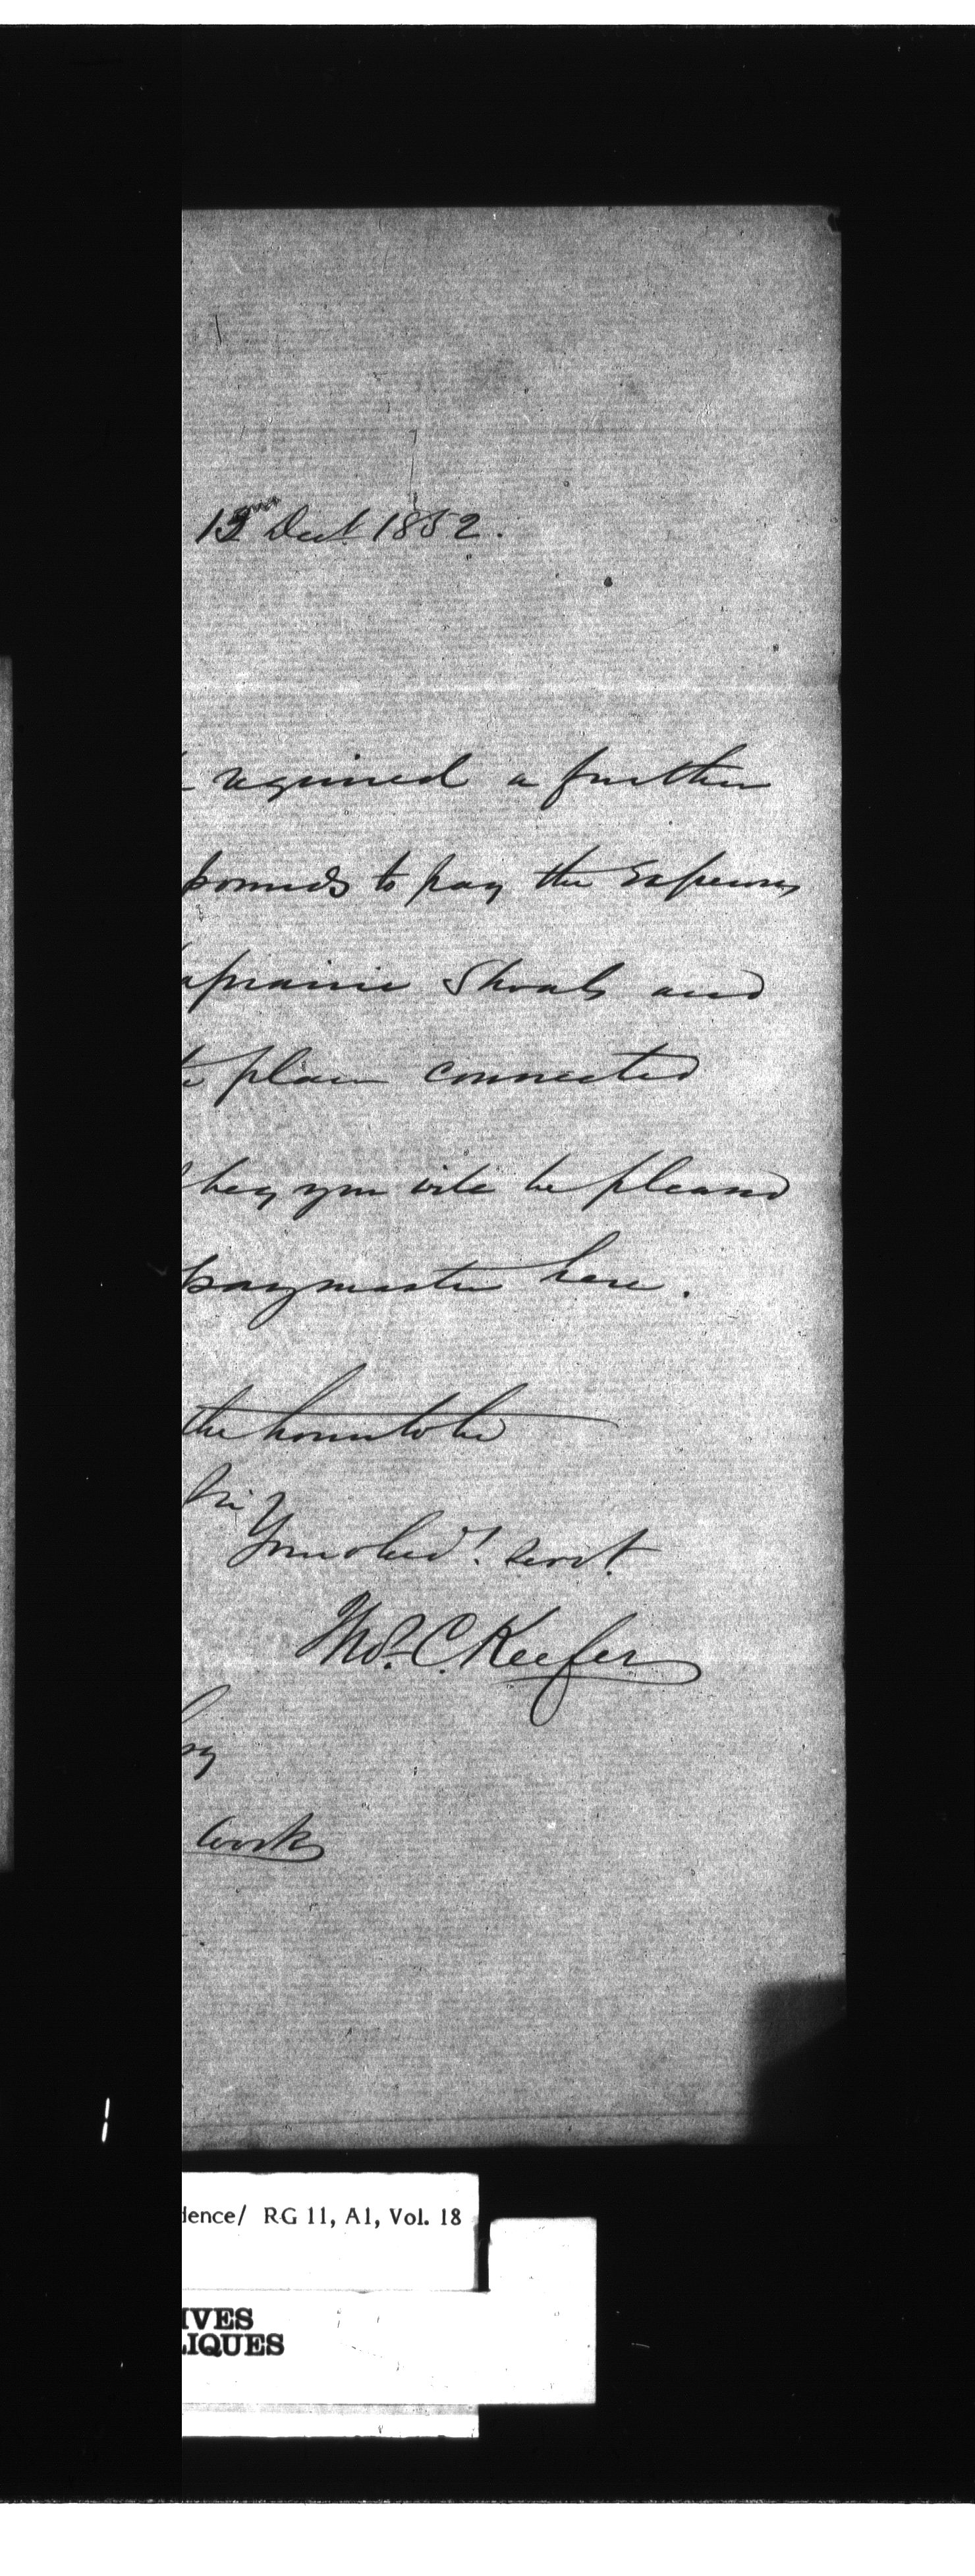 13 Dect. 1852.
required a further
pounds to pay the expenses
aprairie Shoals and
plan connected
beg you will be pleased
paymaster here.
the honor to be
Sir
Your obedt. servt.
Thos. C. Keefer
Works
dence/ RG 11, A1, Vol. 18
IVES
LIQUES